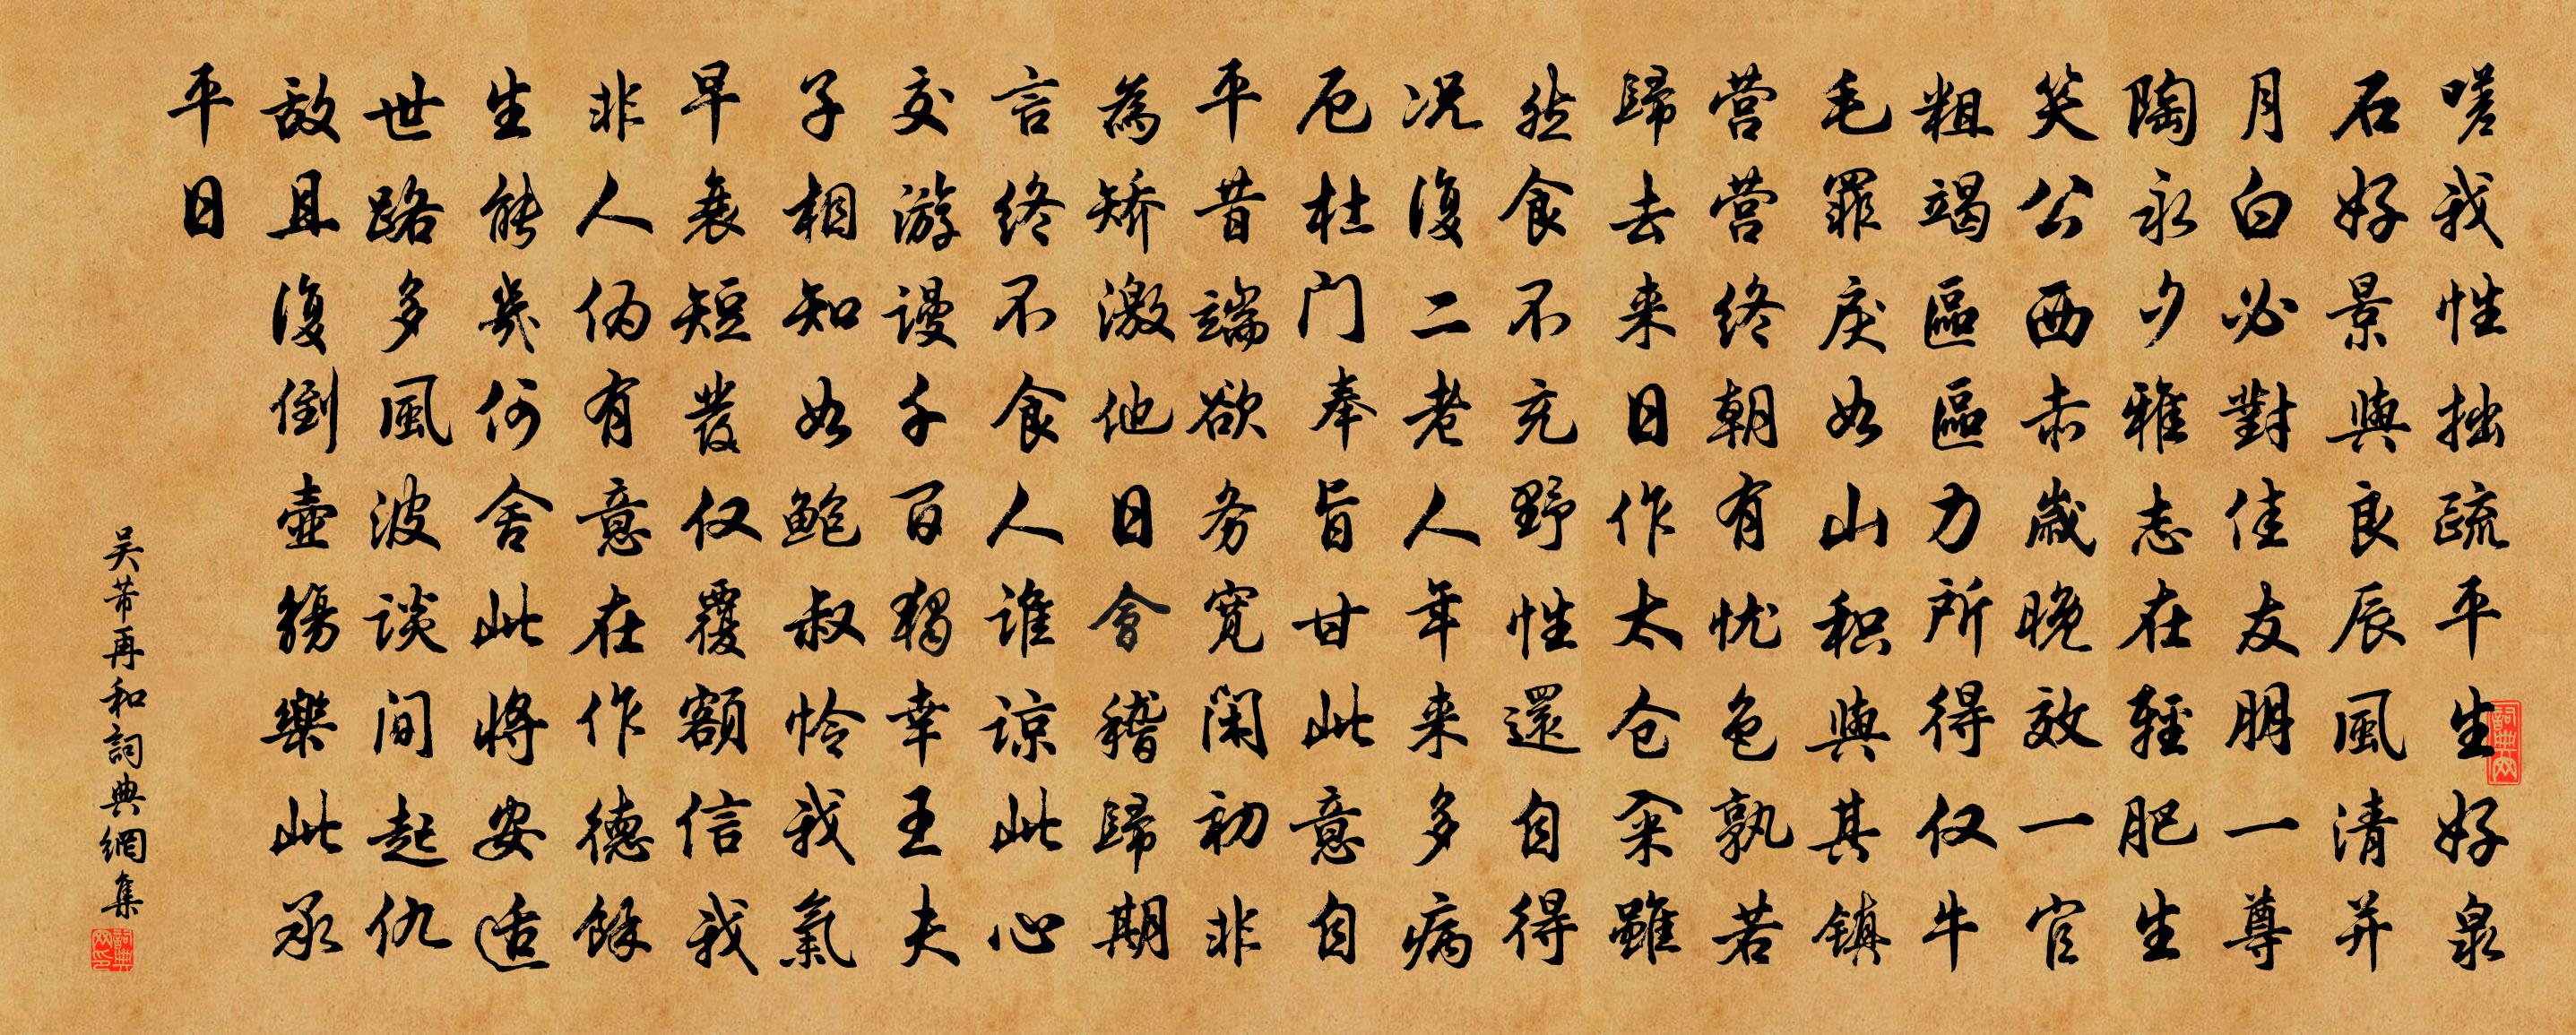 嗟我性拙疏平生好泉
石好景與良辰風清并
月白必對佳友朋一尊
陶永夕雅志在輕肥生
笑公西赤歲晚效一官
粗竭區區力所得仅牛
毛罪戾如山积與其鎮
营营終朝有忧色孰若
歸去来日作太仓籴雖
然食不充野性還自得
况復二老人年来多病
厄杜门奉旨甘此意自
平昔端欲务宽闲初非
為矫激他日會稽歸期
言终不食人谁谅此心
交游謾千百獨幸王夫
子相知如鲍叔怜我氣
早衰短發仅覆額信我
非人伪有意在作德餘
生能幾何舍此将安适
世路多風波谈间起仇
敌且復倒壺觴樂此承
平日
吴芾再和詞典網集
詞典网
詞典网印